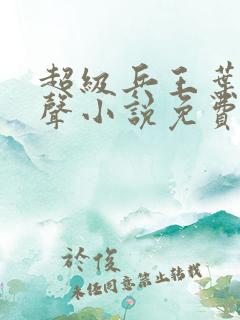 超級兵王葉
聲小說免費
於俊
未經同意禁止轉載